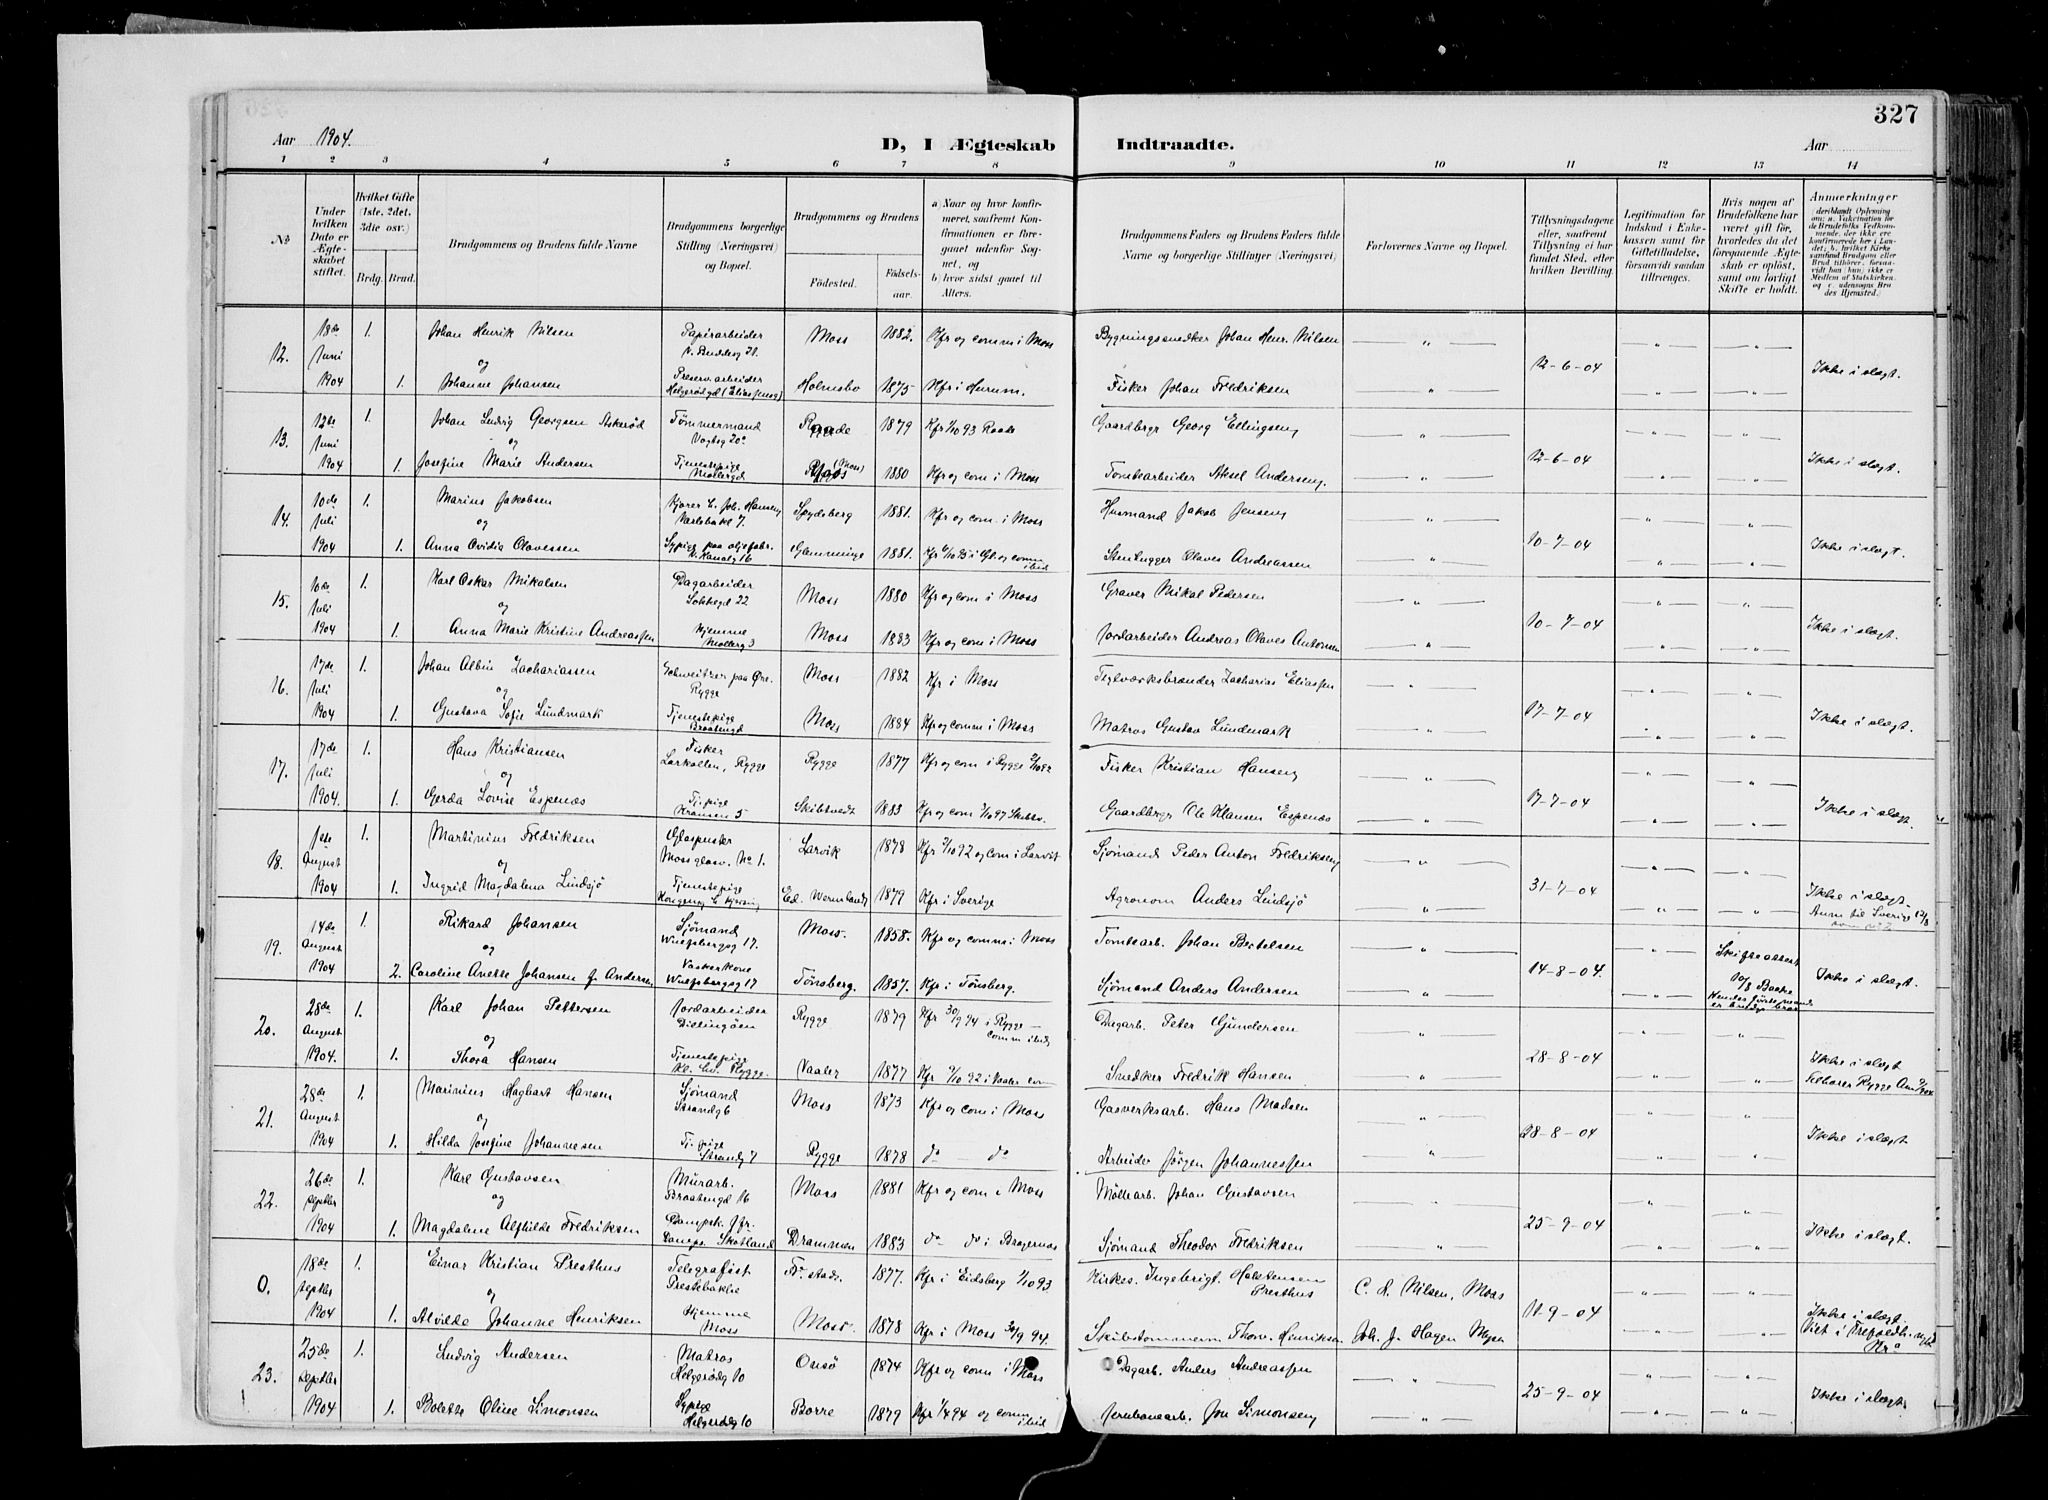 327
Aar 1904.
D, I Ægteskab Indtraadte.
Aar
1 2 3 4 5 6 7 8 9 10 11 12 13 14
No
Under hvilken Dato er Ægteskabet stiftet.
Hvilket Gifte (1ste, 2det, 3die osv.)
Brdg. Brud.
Brudgommens og Brudens fulde Navne
Brudgommens borgerlige Stilling (Næringsvei) og Bopæl.
Brudgommens og Brudens
Födested.
Födsels-aar.
a) Naar og hvor konfirmeret, saafremt Konfirmationen er foregaaet udenfor Sognet, og
b) hvor sidst gaaet til Alters.
Brudgommens Faders og Brudens Faders fulde Navne og borgerlige Stillinger (Næringsvei)
Forlovernes Navne og Bopæl.
Tillysningsdagene eller, saafremt Tillysning ei har fundet Sted, efter hvilken Bevilling.
Legitimation for Indskud i Enkekassen samt for Giftetilladelse, forsaavidt saadan tiltrænges.
Hvis nogen af Brudefolkene har været gift før, hvorledes da det foregaaende Ægteskab er oplöst, samt om lovligt Skifte er holdt.
Anmerkninger
12. 18de Juni 1904 1. Johan Henrik Nilsen Papirarbeider Moss 1882. Kfr og comm i Moss Bygningssnedker Johan Henr. Nilsen 12-6-04 Ikke i slægt.
og
1. Johanne Johansen Preserv.arbeider Holmsbo 1875 Kfr i Hurum. Fisker Johan Fredriksen
13. 12de Juni 1904 1. Johan Ludvig Georgsen Askeröd Tömmermand Vogtsg 20a Raade 1879 Kfr 1/10 93 Raade Gaardbrgr Georg Ellingsen 12-6-04 Ikke i slægt.
og
1. Josefine Marie Andersen Tjenestepige Mollergd (Moss) 1880 Kfr og com i Moss Tomtearbeider Aksel Andersen
14. 10de Juli 1904 1. Marius Jakobsen Kjører C. Joh. Hansen Varlobakl 7. Spydeberg 1881. Kfr og com. i Moss Husmand Jakob Jensen 10-7-04 Ikke i slægt.
og
1. Anna Ovidia Olavessen Sypige paa oljefabr. Kanalg 16 Glemminge 1881. ibid Stenhugger Olaves Andreassen
15. 16de Juli 1904 1. Karl Oskar Mikalsen Dagarbeider 22 Moss 1880 Kfr og com i Moss Graver Mikal Pedersen 10-7-04 Ikke i slægt.
og
1. Anna Marie Kristine Andreassen Hjemme Mollerg 3 Moss 1883 Kfr og com i Moss Jordarbeider Andreas Olaves Antonsen
16. 17de Juli 1904 1. Johan Albin Zachariassen Schweitzer paa Øre. Rygge Moss 1882 Kfr i Moss Teglværksbrænder Zacharias Eliassen 17-7-04 Ikke i slægt.
og
1. Gustava Sofie Lundmark Tjenestepige Braatengd Moss 1884 Kfr og comm i Moss Matros Gustav Lundmark
17. 17de Juli 1904. 1. Hans Kristiansen Fisker Larkollen, Rygge Rygge 1877 Kfr og com i Rygge 2/10 92 Fisker Kristian Hansen 17-7-04 Ikke i slægt.
og
1. Gerda Lovise Espenæs Tj. pige Kransen 5 Skibtvedt 1883 Kfr og comm 3/10 97 Skibtv. Gaardbrgr Ole Klausen Espenæs
18. 1ste August 1904 1. Martinius Fredriksen Glaspuster Moss glasv. No 1. Larvik 1878 Kfr 2/10 92 og com i Larvik Sjömand Peder Anton Fredriksen 31-7-04 Ikke i slægt.
og
1. Ingrid Magdalena Lindsjö Tjenestepige Ed. Wermland 1879 Kfr i Sverige Agronom Anders Lindsjö Anm til Sverige 12/8
19. 14de August 1904 1. Rikard Johansen Sjömand Wulfsbergsg 17. Moss. 1858. Kfr og comm i Moss Tomtearb. Johan Bertelsen 14-8-04. Skifteattest Ikke i slægt.
og
2. Caroline Anette Johansen f. Andersen Vaskerkone Wulfsbergsg 17 Tönsberg. 1857. Kfr i Tönsberg. Sjömand Anders Andersen Hendes förste mand
20. 28de August 1904. 1. Karl Johan Pettersen Jordarbeider Dillingöen Rygge 1879 Kfr 30/9 94 i Rygge comm ibid Dagarb. Peter Gundersen 28-8-04 Ikke i slægt
og
1. Thora Hansen Tjenestepige Rygge. Vaaler 1877 Kfr 9/10 92 i Vaaler com Snedker Fredrik Hansen Tilhører Rygge
21. 28de August 1904 1. Marinius Hagbart Hansen Sjömand Strandg 6 Moss 1873 Kfr og com i Moss Gasverksarb. Hans Madsen 28-8-04 Ikke i slægt
og
1. Hilda Josefine Johannesen Tj. pige Strandg 7 Rygge 1878 do — do Arbeider Jörgen Johannessen
22. 26de Septbr 1904 1. Karl Gustavsen Murarb. Braatengd 16 Moss 1881 Kfr og com i Moss Möllearb. Johan Gustavsen 25-9-04 Ikke i slægt.
og
1. Magdalene Alfhilde Fredriksen Dampsk. jfr. Damps. Skotland Drammen 1883 do do i Bragernes Sjömand Theodor Fredriksen
0. 18de Septbr 1904 1. Einar Kristian Presthus Telegrafist Prestebakke Fr. stad. 1877. Kfr i Eidsberg 1/10 93 Kirkes. Ingebrigt Holstensen Presthus C. A. Nilsen, Moss 11-9-04 Ikke i slægt.
og
1. Alvilde Johanne Henriksen Hjemme Moss Moss. 1878 Kfr i Moss 30/9 94. Skibstömmerm Thorv. Henriksen Joh. J. Hagen Mysen
23. 25de Septbr 1904 1. Ludvig Andersen Matros Helgerödg 10 Onsö 1874 Kfr og com i Moss Dagarb. Anders Andreassen 25-9-04 Ikke i slægt.
1. Bolette Oline Simonsen Sypige Helgerödg 10 Borre 1879 Kfr 1/4 94 og comm ibid Jernbanearb. Jon Simonsen